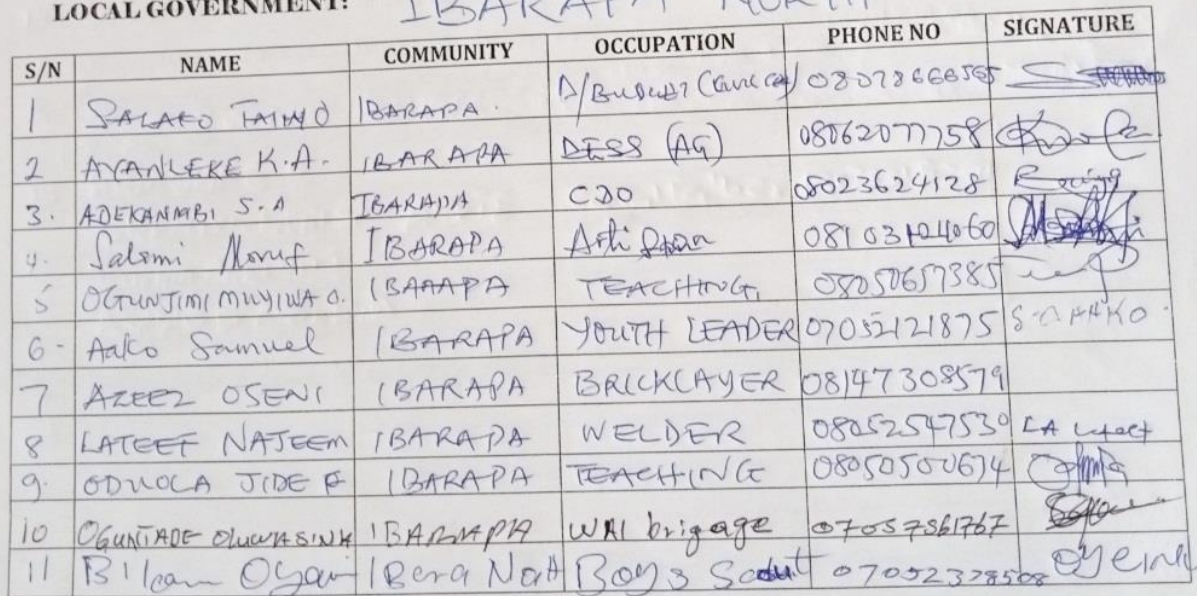 LOCAL GOVERNMENT: IBARAPA NORTH
S/N NAME COMMUNITY OCCUPATION PHONE NO SIGNATURE
1 SALAKO TAIWO IBARAPA. 08078666565
2 AYANLEKE K.A. IBARAPA DESS (AG) 08062077758
3. ADEKANMBI S.A IBARAPA CDO 08023624128
4. Salami Moruf IBARAPA Artisan 08103124060
5 OGUNJIMI MUYIWA O. IBARAPA TEACHING 08050657385
6- Aako Samuel IBARAPA YOUTH LEADER 07052121875 S.O AAKO
7 AZEEZ OSENI IBARAPA BRICKLAYER 08147308579
8 LATEEF NAJEEM IBARAPA WELDER 08052547530
9. ODUOLA JIDE F IBARAPA TEACHING 08050500674
10 OGUNTADE OLUWASINA IBARAPA WAI brigage 07057561767
11 Boys Scout 07052378508